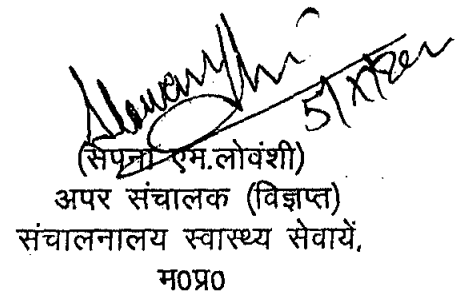 5/X/202
(सपना एम.लोवंशी)
अपर संचालक (विज्ञप्त)
संचालनालय स्वास्थ्य सेवायें,
म0प्र0